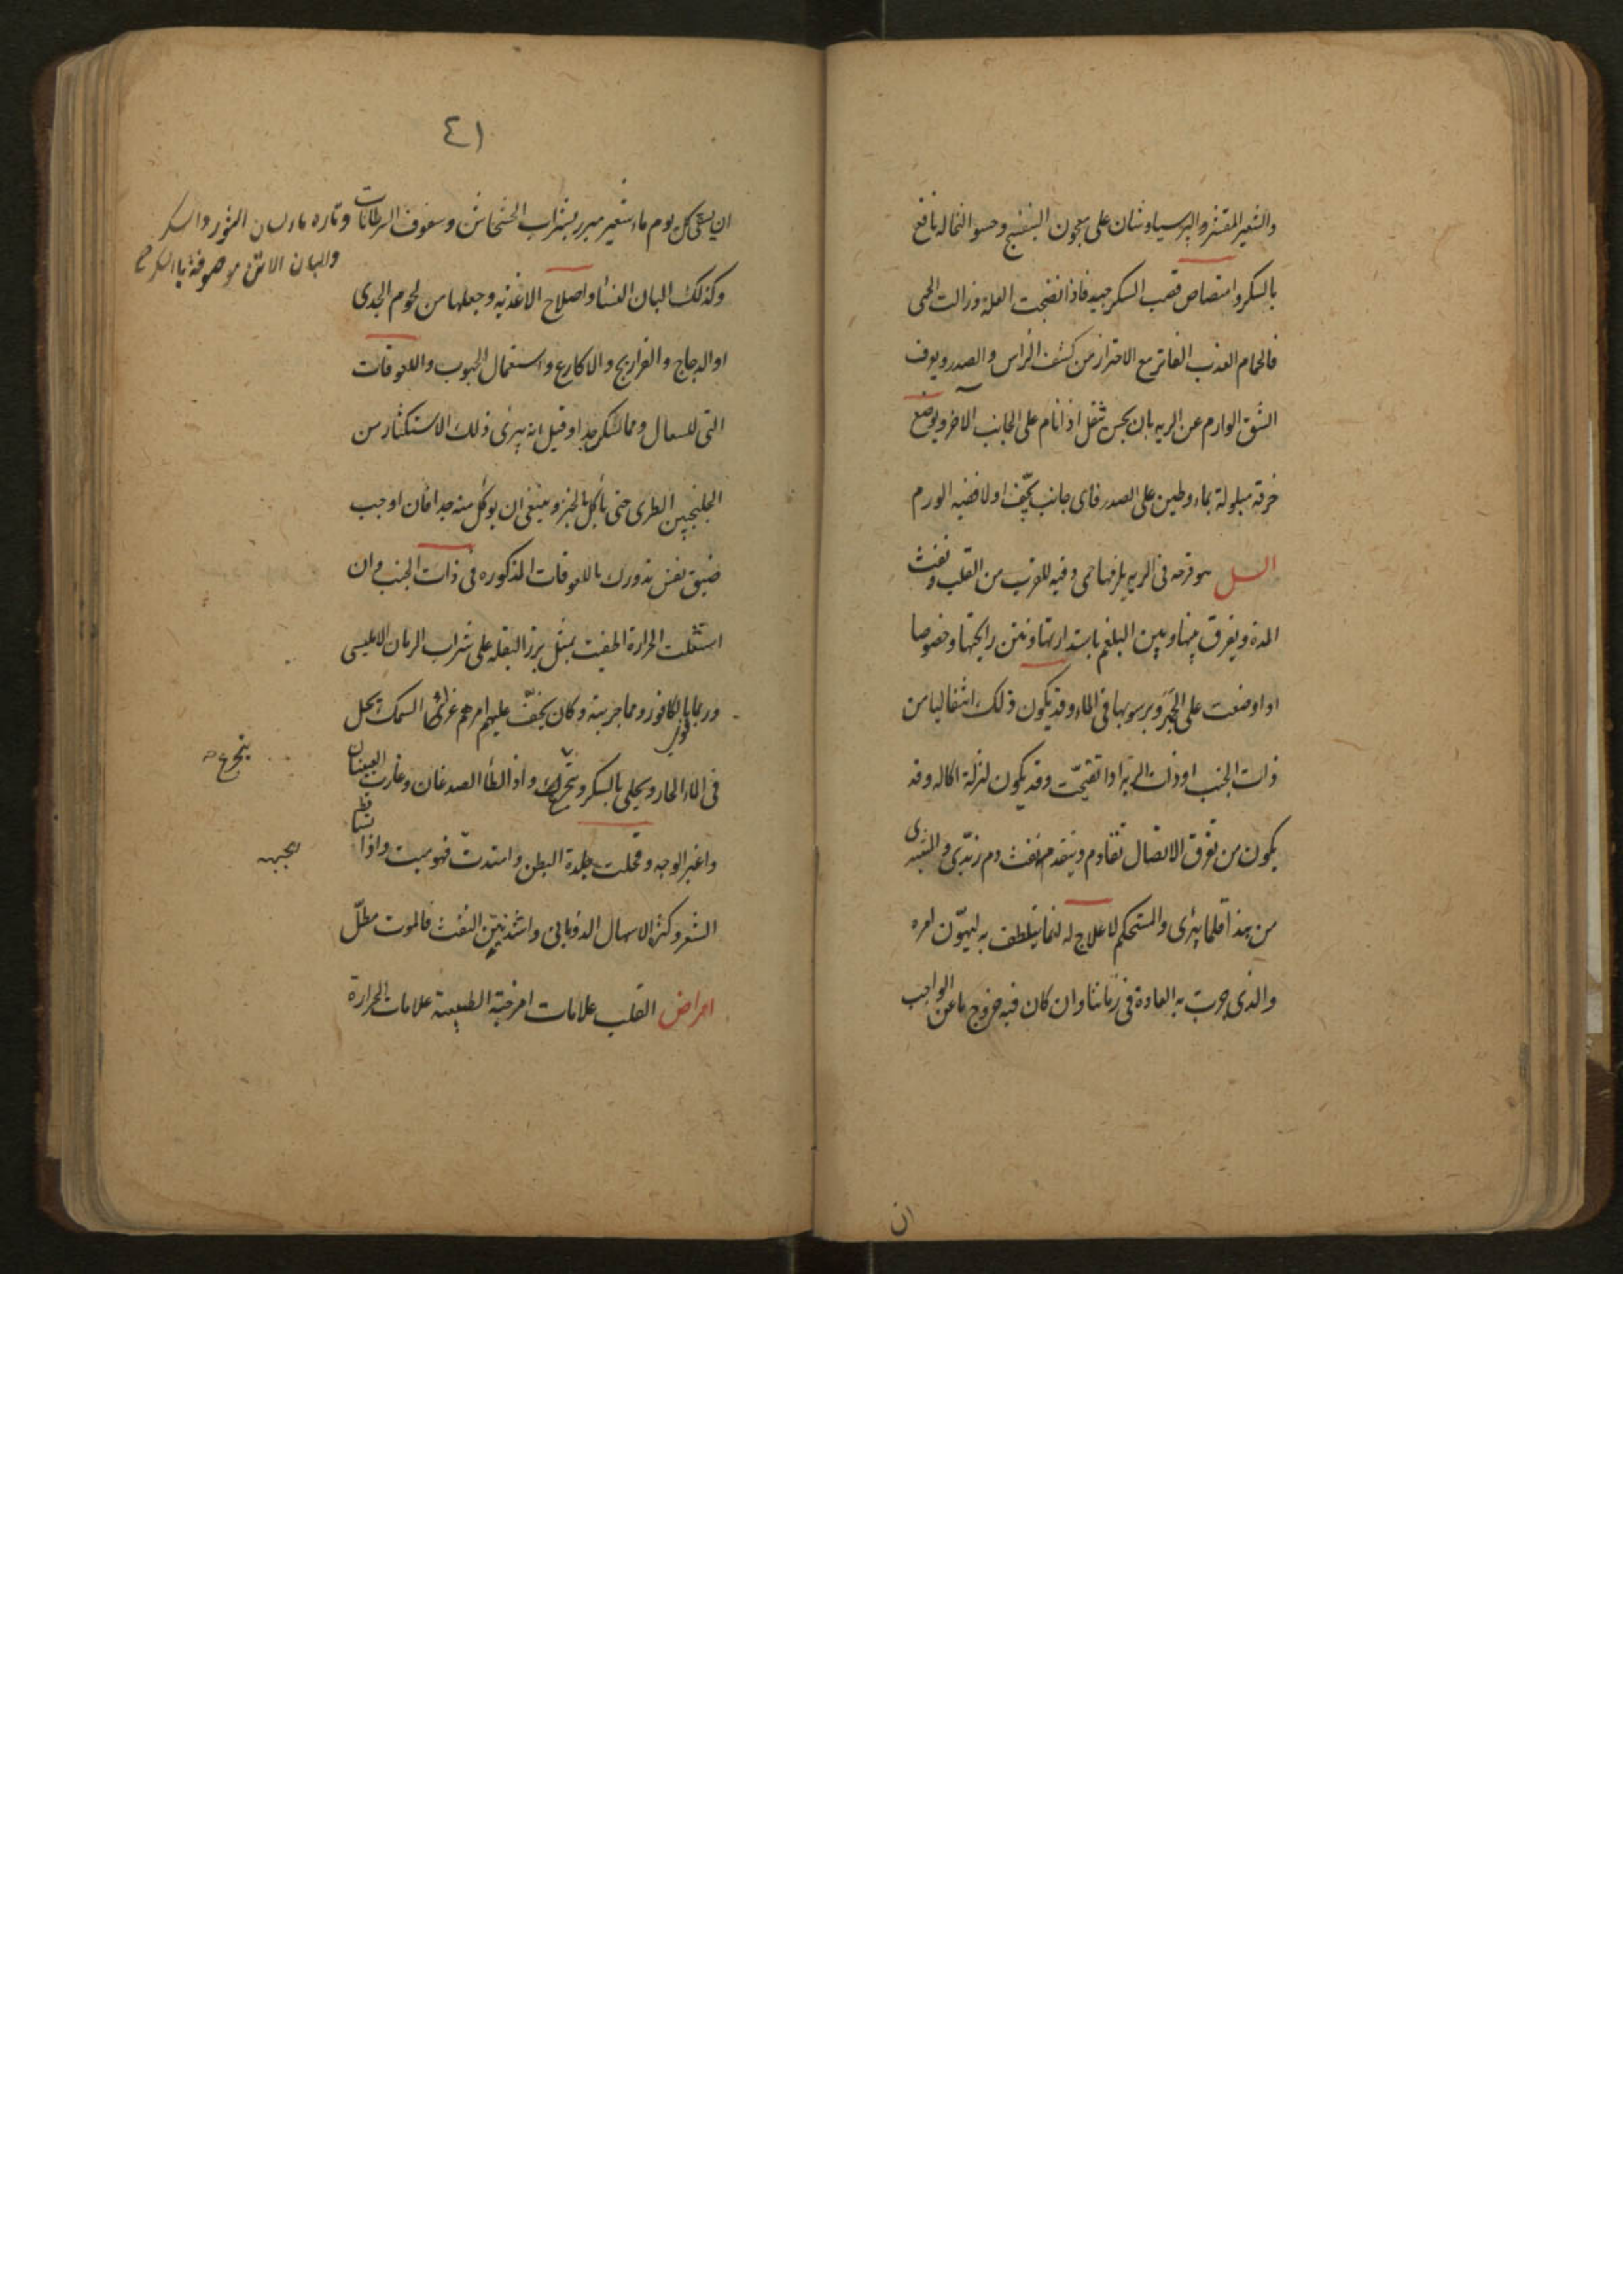 والشعیر المقشر والبرسیاوشان علی معجون البنفسج وحسو النخالة نافع
بالسکر وامتصاص قصب السکر جید فاذا نضجت العلة وزالت الحمی
فالحمام العذب الفاتر مع الاحتراز من کشف الراس والصدر ویعرف
الشق الوارم عن الریه بان یحس بثقل اذا نام علی الجانب الاخر ویوضع
خرقة مبلولة بماء وطین علی الصدر فای جانب یجّف اولا ففیه الورم
السل هو قرحه فی الریه یلزمها حمی دقیه للقرب من القلب ونفث
المدة ویفرق بینها وبین البلغم باستدارتها ونتن رایحتها وخصوصا
اذا وضعت علی الجمر وبرسوبها فی الماء وقد یکون ذلک انتقالیا من
ذات الجنب او ذات الریه اذا تقیحّت وقد یکون لنزلة اکاله وقد
یکون من تفرق الاتصال تقادم ویتقدمه نفث دم زبدّی والمبتدی
من هذا قلما یبری والمستحکم لا علاج له انما یتلطف به لیهوّن امره
والذی جرت به العادة فی زماننا وان کان فیه خروج ما عن الواجب
ان
٤١
ان یسقی کل یوم ماء شعیر مبرر بشراب الخشخاش وسفوف السرطانات وتاره ماء لسان الثور والسکر
والبان الاتن موصوفة بالسکر صح
وکذلک البان النساء واصلاح الاغذیه وجعلها من لحوم الجدی
او الدجاج والفراریج والاکارع واستعمال الحبوب واللعوقات
التی للسعال ومما شکر جدا وقیل انه یبری ذلک الاستکثار من
الجلنجبین الطری حتی یأکل بالخبز وینبغی ان یوکل منه جدا فان اوجب
ضیق نفس تدورک باللعوقات المذکوره فی ذات الجنب وان
اشتعلت الحرارة اطفیت بمثل بزر البقله علی شراب الرمان الاملیسی
وربما بالکافور ومما جربته وکان یخفّ علیهم امرهم غری السمک یحل
فی الماء الحار ویحلی بالسکر ویتجرع واذا لطأ الصدغان وغارت العینان
یتجرع
واغبر الوجه وقحلت جلدة البطن وامتدت فهو میت واذا تساقط
الشعر وکثر الاسهال الذوبانی واشتد نتن النفث فالموت مطلّ
امراض القلب علامات امزجته الطبیعیه علامات الحرارة